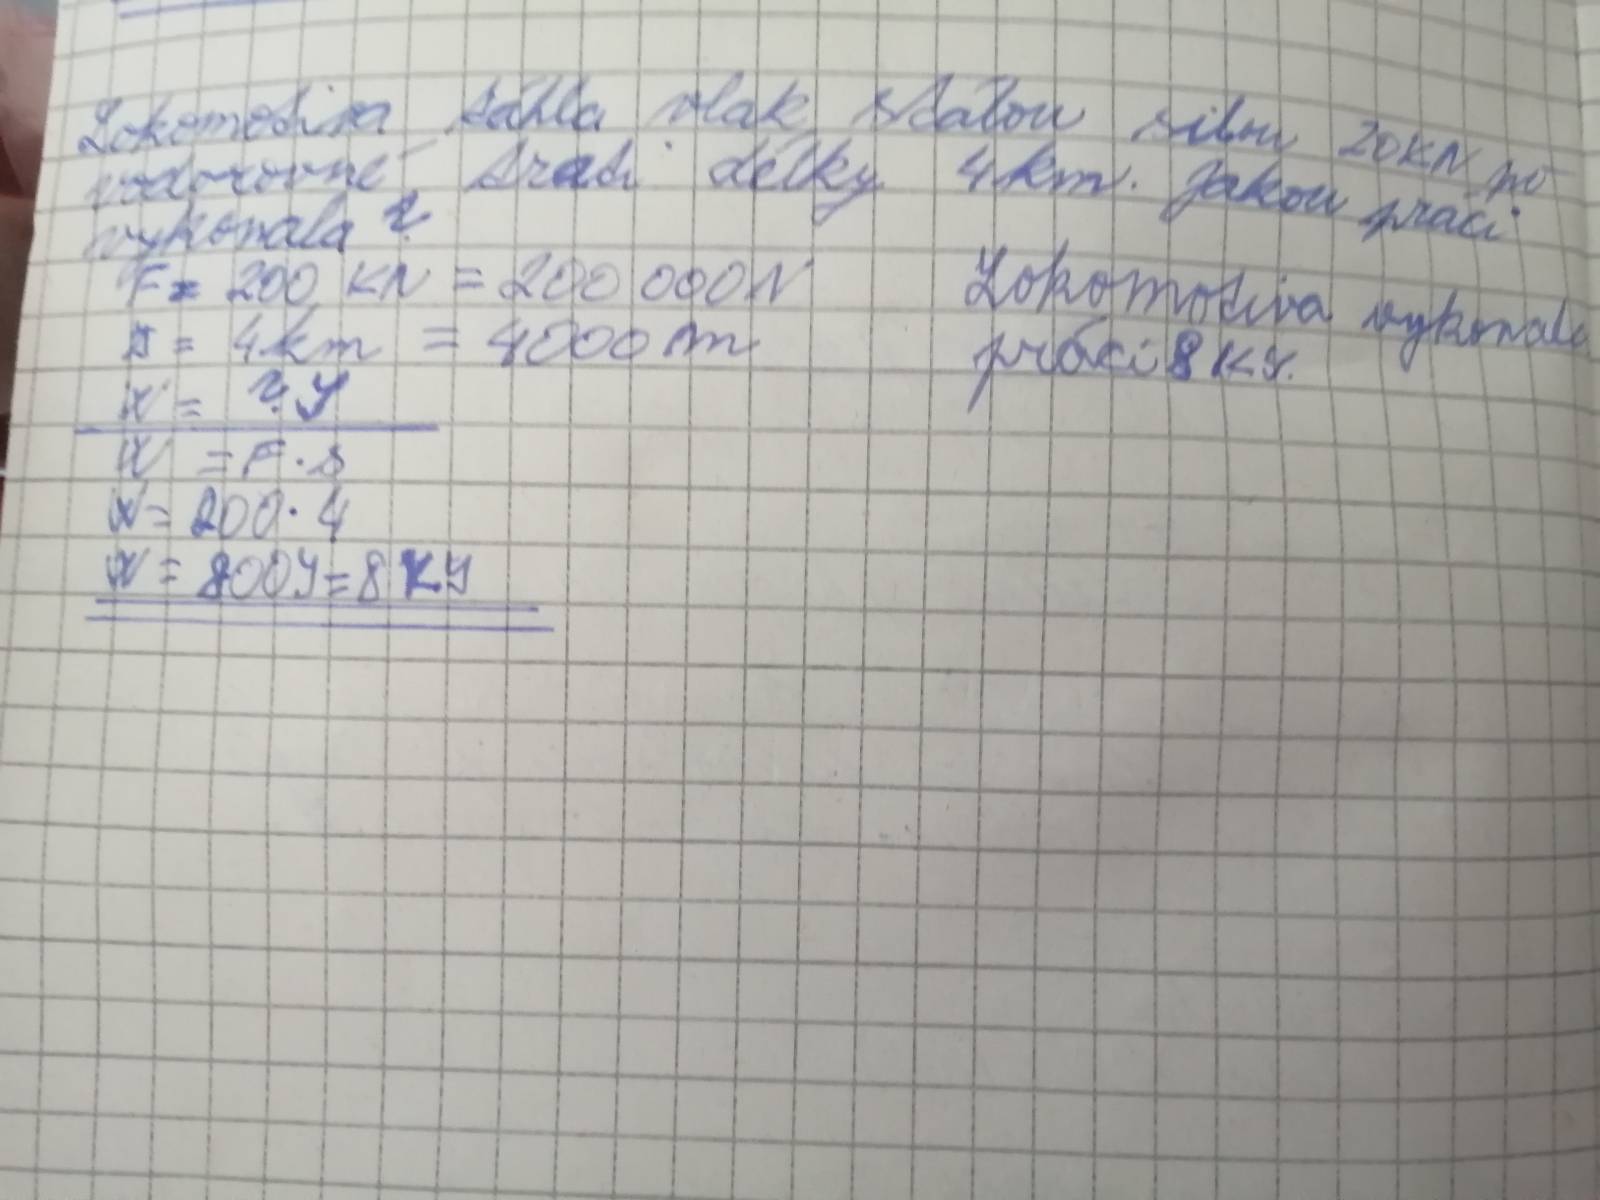 Lokomotiva táhla vlak stálou silou 20KN po
vodorovné trati délky 4km. Jakou práci
vykonala?
F= 200 KN = 200 000N
s = 4km = 4000m
W = ? J
W = F·s
W= 200·4
W = 800J=8KJ
Lokomotiva vykonala
práci 8KJ.